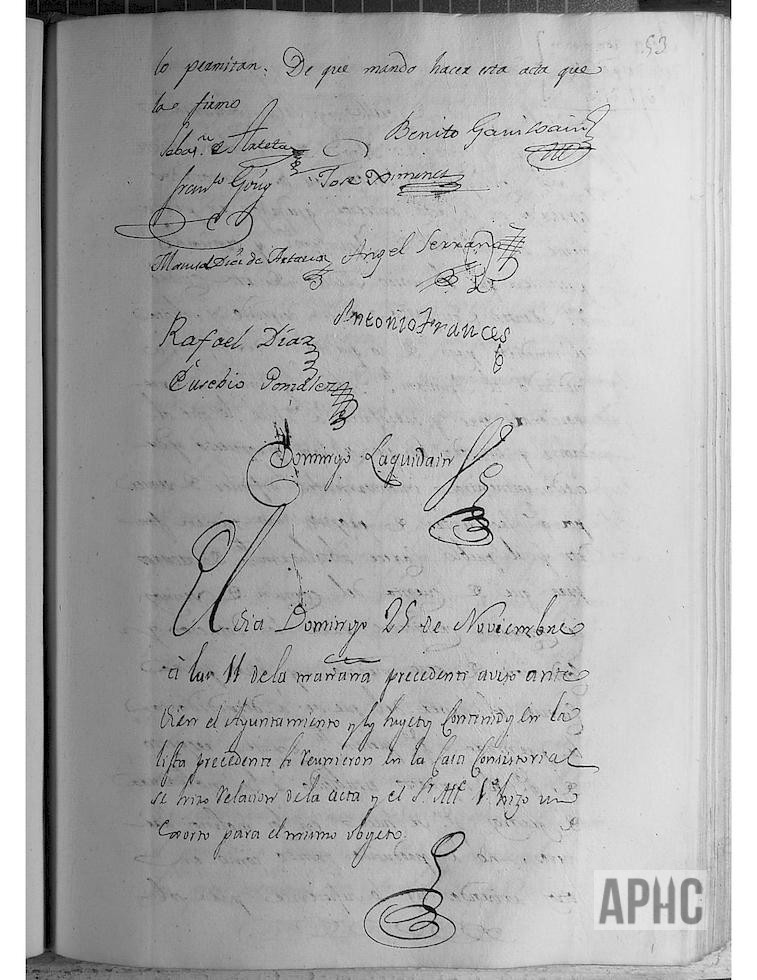 53
lo permitan. De que mando hacer esta acta que
la firmo
Sebas.n de Arleta
Benito Garicoain
Fran.co Goñy
Jose Ximenez
Manuel Díaz de Artavia
Angel Serrano
Antonio Frances
Rafael Díaz
Eusebio Gonzalez
Domingo Laquidain
El dia Domingo 25 de Noviembre
á las 11 de la mañana precedente aviso ante
diem el Ayuntamiento y los sugetos Contenidos en la
lista precedente se reunieron en la Casa Consistorial
se hizo relacion de la acta y el Sr. Alc.e 1.º hizo un
Exorto para el mismo obgeto.
APHC